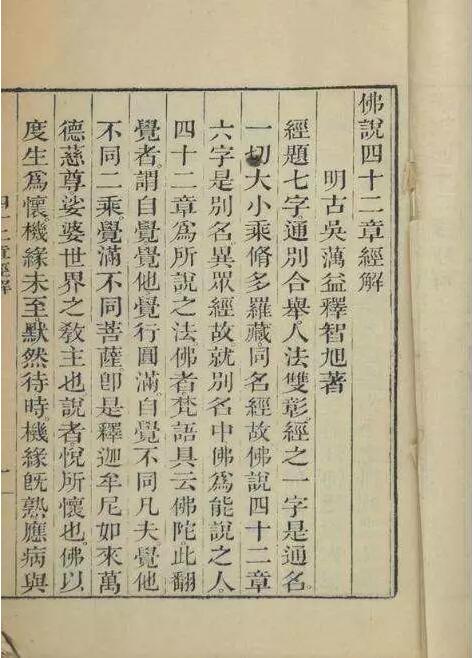 佛說四十二章經解
明古吳蕅益釋智旭著
經題七字通別合舉人法雙彰經之一字是通名。
一切大小乘脩多羅藏同名經故佛說四十二章
六字是別名異眾經故就別名中佛為能說之人。
四十二章為所說之法。佛者梵語具云佛陀。此翻
覺者。謂自覺覺他覺行圓滿。自覺不同凡夫。覺他
不同二乘。覺滿不同菩薩。卽是釋迦牟尼如來萬
德慈尊娑婆世界之教主也。說者悅所懷也。佛以
度生為懷。機緣未至默然待時。機緣旣熟應病與
四十二章經解
一